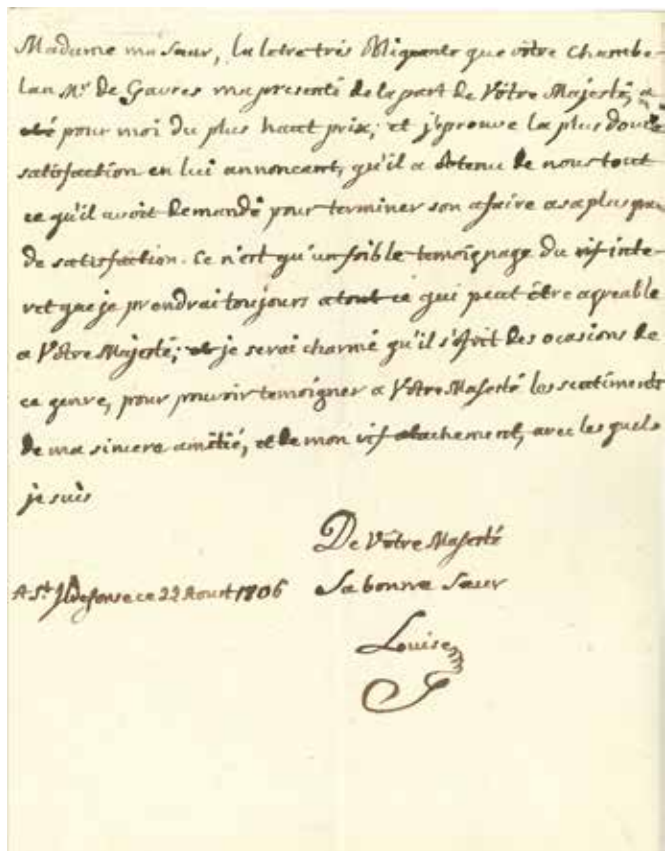 Madame ma Sœur, la letre trés obligeante que vôtre chambe-
lan Mr. De Gavres m'a presenté de la part de Vôtre Majesté, a
eté pour moi du plus haut prix; et j'eprouve la plus douce
satisfaction en lui annoncant, qu'il a obtenu de nous tout
ce qu'il avoit demandé pour terminer son afaire a sa plus gran-
de satisfaction. Ce n'est qu'un foible temoignage du vif inte-
ret que je prendrai toujours a tout ce qui peut être agreable
a Vôtre Majesté; et je serai charmé qu'il s'ofrit des ocasions de
ce genre, pour pouvoir temoigner a Vôtre Majesté les sentiments
de ma sincere amitié, et de mon vif atachement, avec les quels
je suis
De Vôtre Majesté
A St. Ildefonse ce 22 Aout 1806
Sa bonne Sœur
Louise